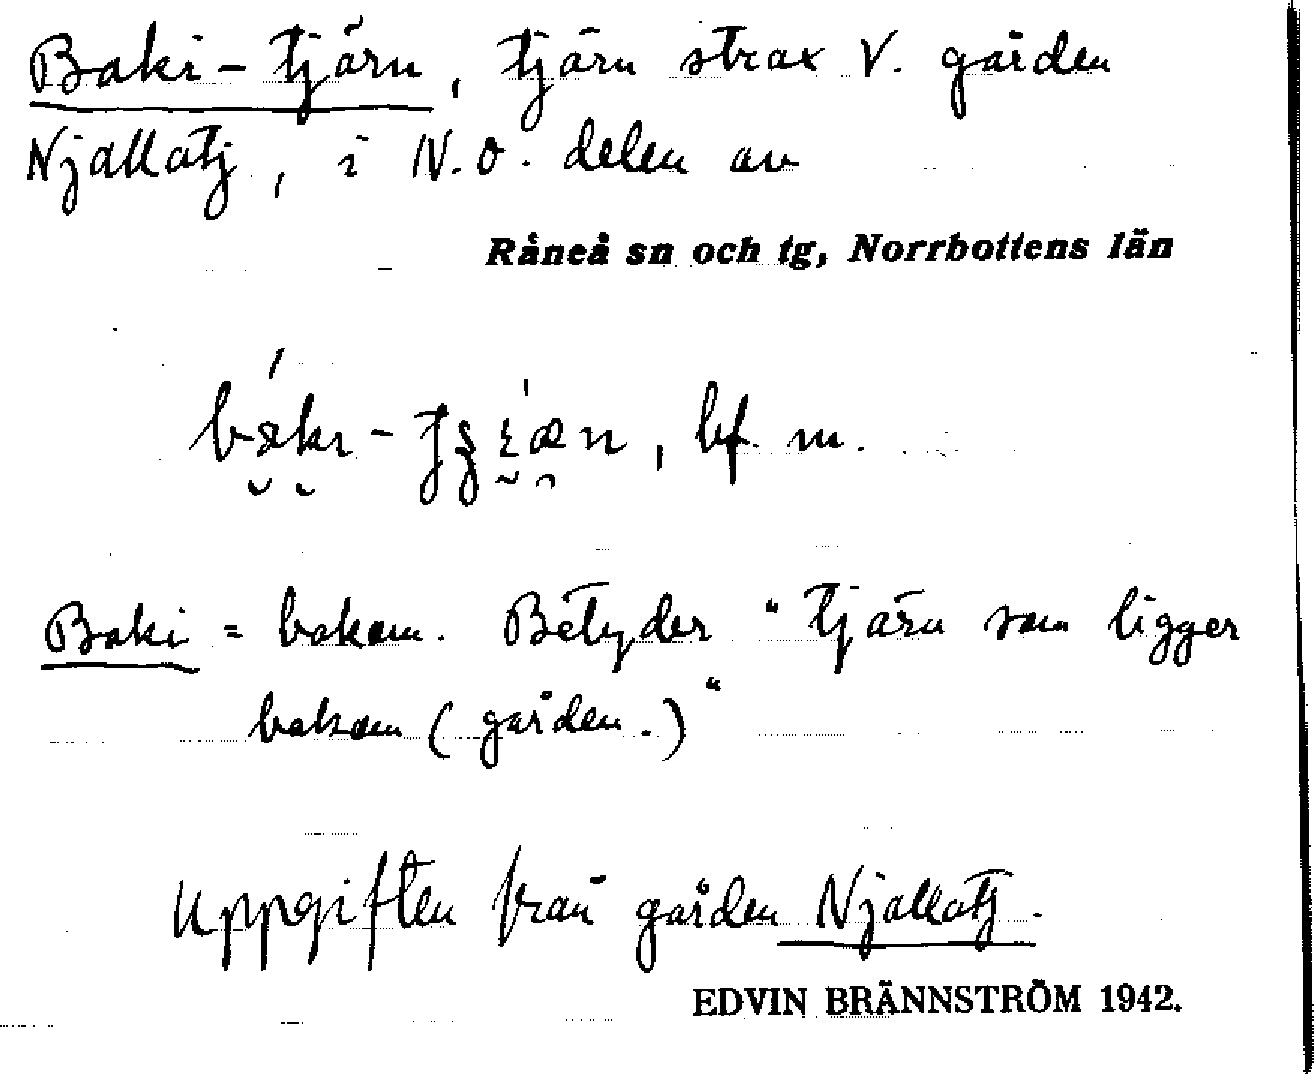 Baki-tjärn, tjärn strax V. gården
Njallatj, i N.O. delen av
Råneå sn och tg, Norrbottens län
bf. m.
Baki = bakom. Betyder "tjärn som ligger
bakom (gården.)"
Uppgiften från gården Njallatj.
EDVIN BRÄNNSTRÖM 1942.